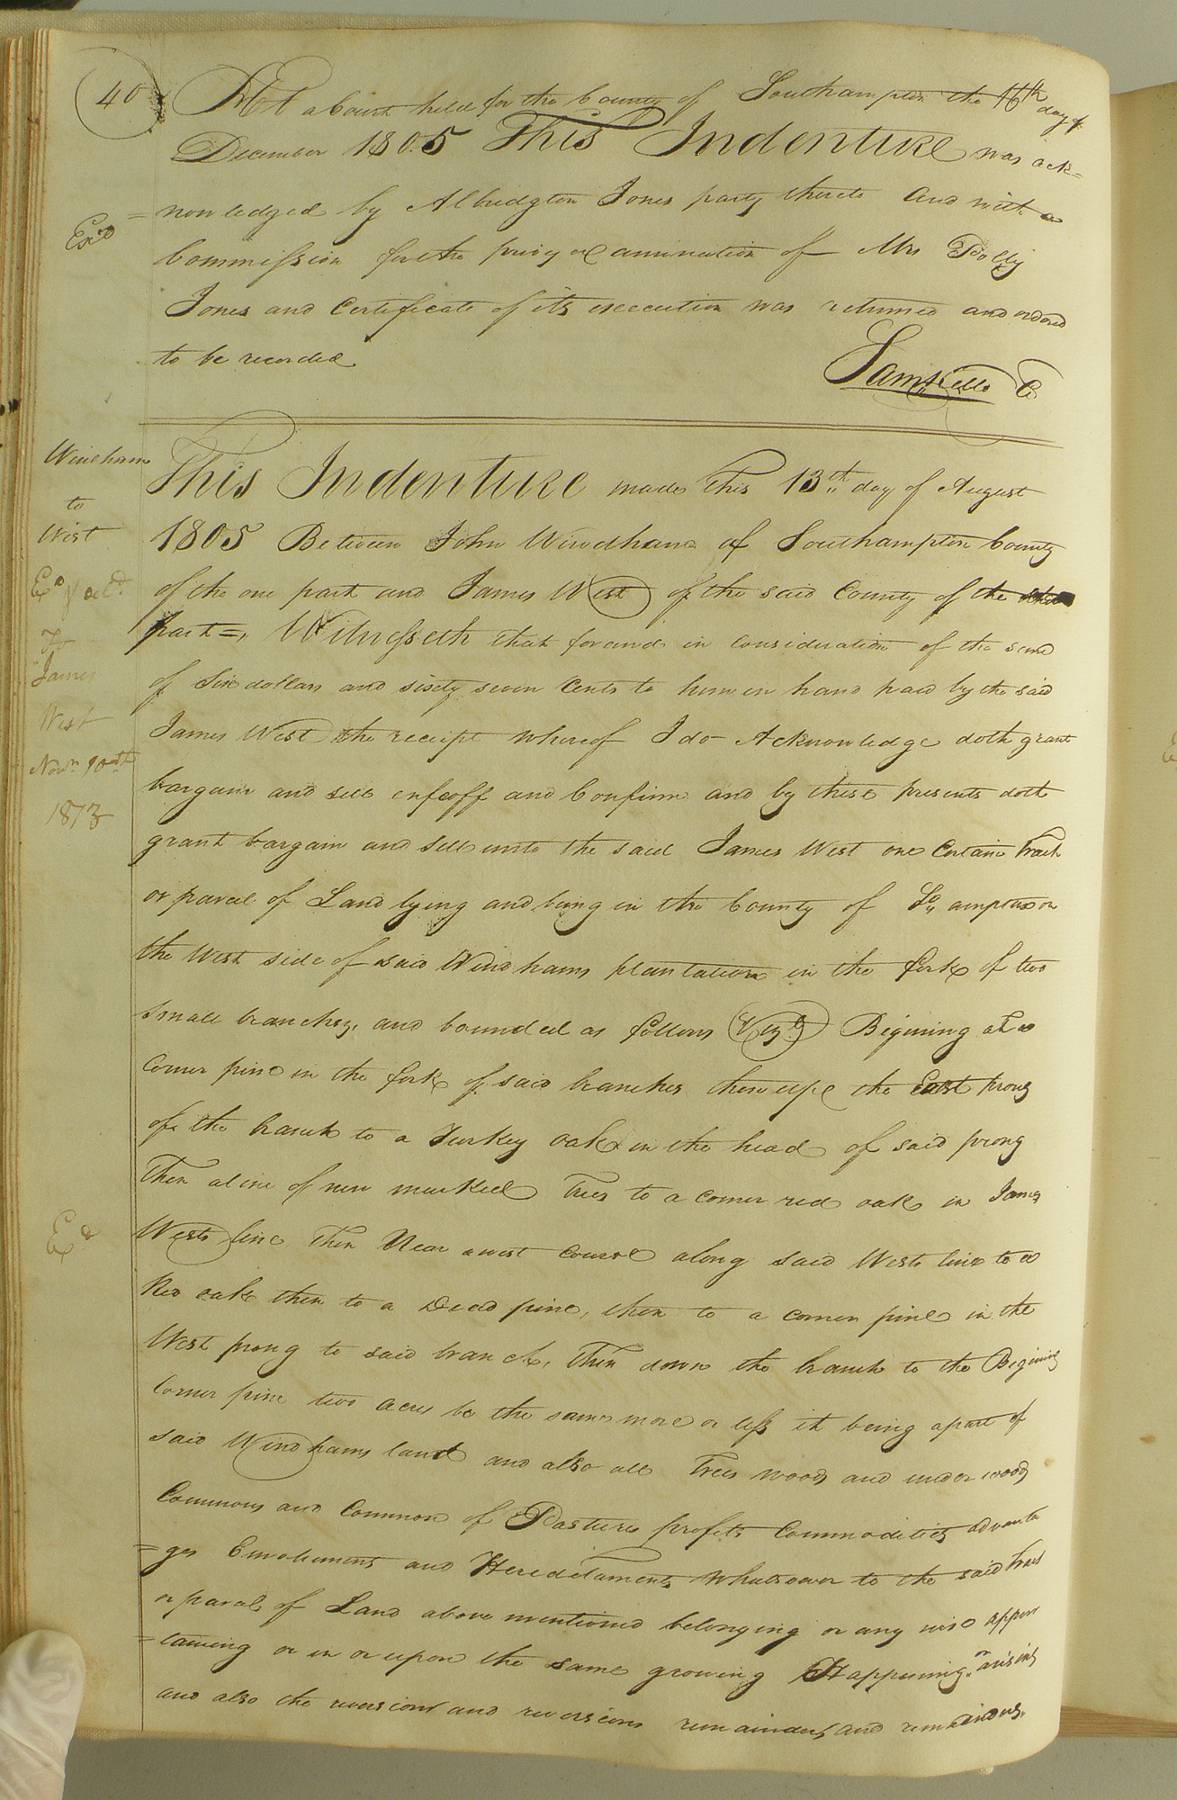 40
At a Court held for the County of Southampton the 16th day of
December 1805 This Indenture was ack=
=nowledged by Albridgton Jones party thereto and with a
Exd
Commission for the privy examination of Mrs Polly
Jones and Certificate of its execution was returned and ordered
to be recorded
Saml Kello C
Windham
to
West
Exd & deld
To
James
West
Novr 10th
1873
This Indenture made this 13th day of August
1805 Between John Windham of Southampton County
of the one part and James West of the said County of the other
part=, Witnesseth that for and in consideration of the sum
of Six dollars and sixty seven Cents to him in hand paid by the said
James West the receipt whereof I do Acknowledge doth grant
bargain and sell enfeoff and Confirm and by these presents doth
grant bargain and sell unto the said James West one Certain Tract
or parcel of Land lying and being in the County of So,,ampton on
the West side of said Windhams plantation in the fork of two
small branches, and bounded as follows (Viz) Begining at a
Corner pine in the fork of said branches thence up the East prong
of the branch to a Turkey oak in the head of said prong
Then a line of new marked Trees to a corner red oak in James
Wests line Then Near a west course along said Wests line to a
Exd
Red oak then to a Dead pine, then to a corner pine in the
West prong to said branch, Then down the branch to the Begining
Corner pine two acres be the same more or less it being a part of
said Windhams land and also all Trees woods and under woods
Commons and Common of Pastures profits Commodities advanta
=ges Emoluments and Hereditaments whatsoever to the said Tract
or parcel of Land above mentioned belonging or any wise apper
=taining or in or upon the same growing Happening or arising
and also the reversion and reversions remainder, and remainders,